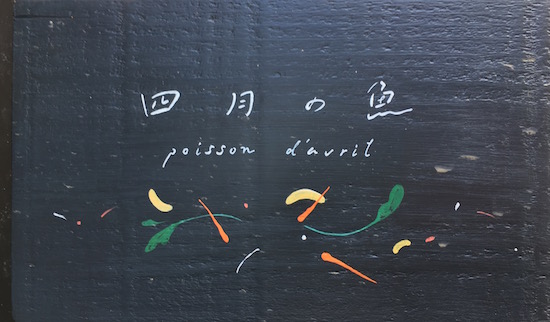 四月の魚
poisson d'avril